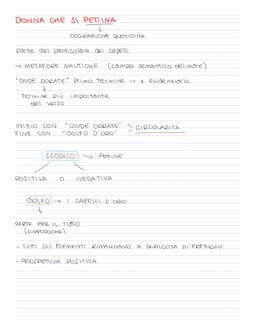 DONNA CHE SI PETTINA
OCCUPAZIONE QUOTIDIANA
Parte dal particolare dei capelli
→ METAFORE NAUTICHE (campo semantico del mare)
"ONDE DORATE" Primo termine → x evidenziarlo
termine più importante
del verso
INIZIO CON "ONDE DORATE" > CIRCOLARITÀ
FINE CON "GOLFO D'ORO"
SCOGLIO → PETTINE
POSITIVA O NEGATIVA
GOLFO → I CAPELLI D'ORO
PARTE PER IL TUTTO
(SINEDDOCHE)
- TUTTI GLI ELEMENTI RIMANDANO A QUALCOSA DI PREZIOSO
- PROSPETTIVA POSITIVA